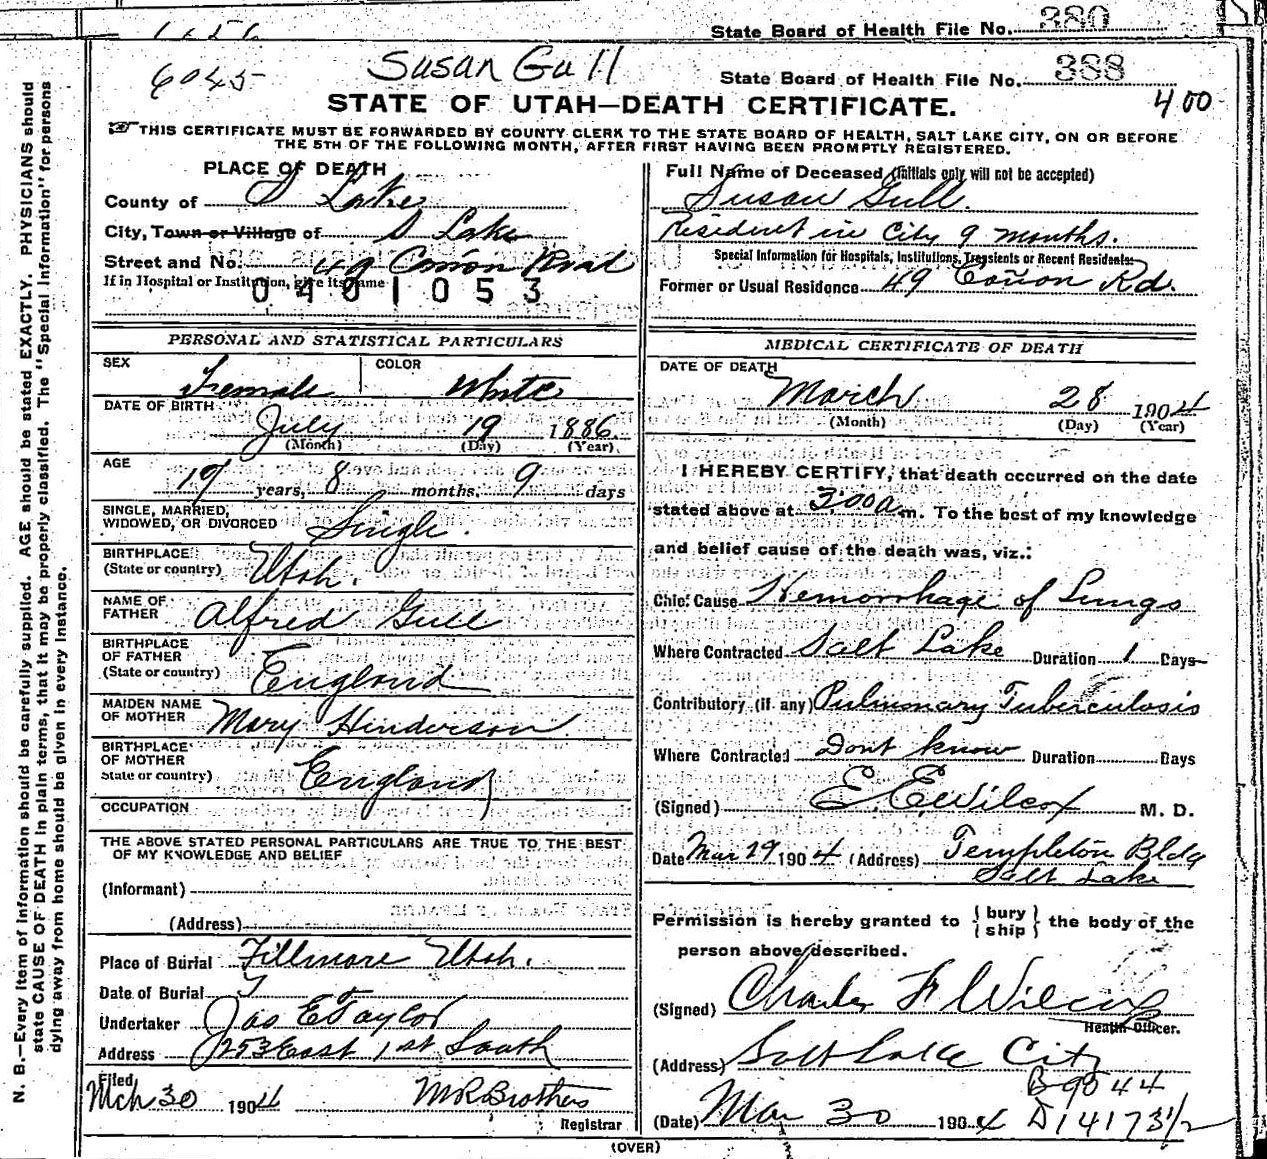 State Board of Health File No. 380
6045 Susan Gull State Board of Health File No. 388
STATE OF UTAH—DEATH CERTIFICATE. 400
THIS CERTIFICATE MUST BE FORWARDED BY COUNTY CLERK TO THE STATE BOARD OF HEALTH, SALT LAKE CITY, ON OR BEFORE
THE 5TH OF THE FOLLOWING MONTH, AFTER FIRST HAVING BEEN PROMPTLY REGISTERED.
PLACE OF DEATH
County of S Lake
City, Town or Village of S Lake
Street and No. 49 Cañon Road
If in Hospital or Institution, give its name
0401053
Full Name of Deceased (Initials only will not be accepted)
Susan Gull.
Resident in City 9 months.
Special Information for Hospitals, Institutions, Transients or Recent Residents:
Former or Usual Residence 49 Cañon Rd.
PERSONAL AND STATISTICAL PARTICULARS
SEX Female COLOR White
DATE OF BIRTH
July 19 1886
(Month) (Day) (Year)
AGE
19 years, 8 months, 9 days
SINGLE, MARRIED,
WIDOWED, OR DIVORCED Single.
BIRTHPLACE
(State or country) Utah.
NAME OF
FATHER Alfred Gull
BIRTHPLACE
OF FATHER
(State or country) England
MAIDEN NAME
OF MOTHER Mary Henderson
BIRTHPLACE
OF MOTHER
State or country) England
OCCUPATION
THE ABOVE STATED PERSONAL PARTICULARS ARE TRUE TO THE BEST
OF MY KNOWLEDGE AND BELIEF
(Informant)
(Address)
Place of Burial Fillmore Utah.
Date of Burial
Undertaker Jas E Taylor
Address 253 East 1st South
Filed
Mch 30 1904 M R Brothers
Registrar
MEDICAL CERTIFICATE OF DEATH
DATE OF DEATH
March 28 1904
(Month) (Day) (Year)
I HEREBY CERTIFY, that death occurred on the date
stated above at 3:00 a.m. To the best of my knowledge
and belief cause of the death was, viz.:
Chief Cause Hemorrhage of Lungs
Where Contracted Salt Lake Duration 1 Days
Contributory (if any) Pulmonary Tuberculosis
Where Contracted Dont know Duration Days
(Signed) E. E. Wilcox M. D.
Date Mar 29 1904 (Address) Templeton Bldg
Salt Lake
Permission is hereby granted to { bury ship } the body of the
person above described.
(Signed) Charles F Wilcox
Health Officer.
(Address) Salt Lake City
B9544
(Date) Mar 30 1904 D 14173 1/2
(OVER)
N. B.—Every item of information should be carefully supplied. AGE should be stated EXACTLY. PHYSICIANS should
state CAUSE OF DEATH in plain terms, that it may be properly classified. The "Special Information" for persons
dying away from home should be given in every instance.